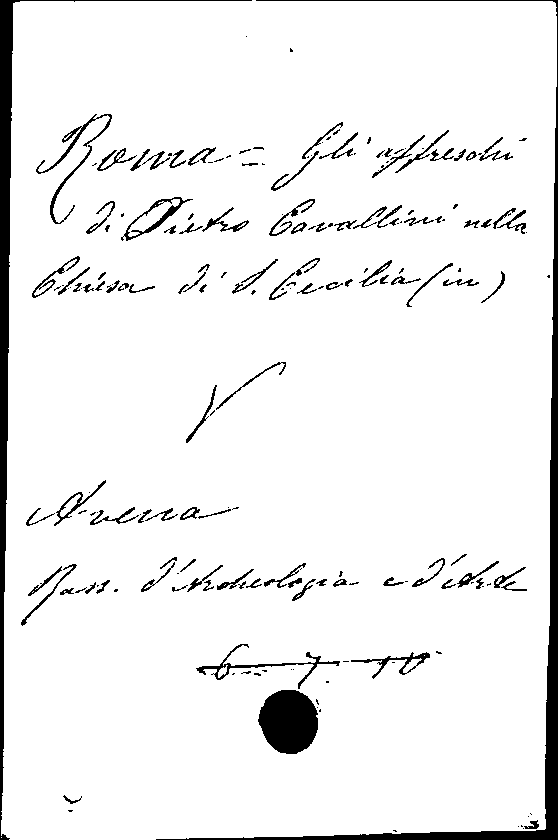 Roma = Gli affreschi
di Pietro Cavallini nella
Chiesa di S. Cecilia (in)
V
Avena
Rass. d'Archeologia e d'Arte
6 7 10